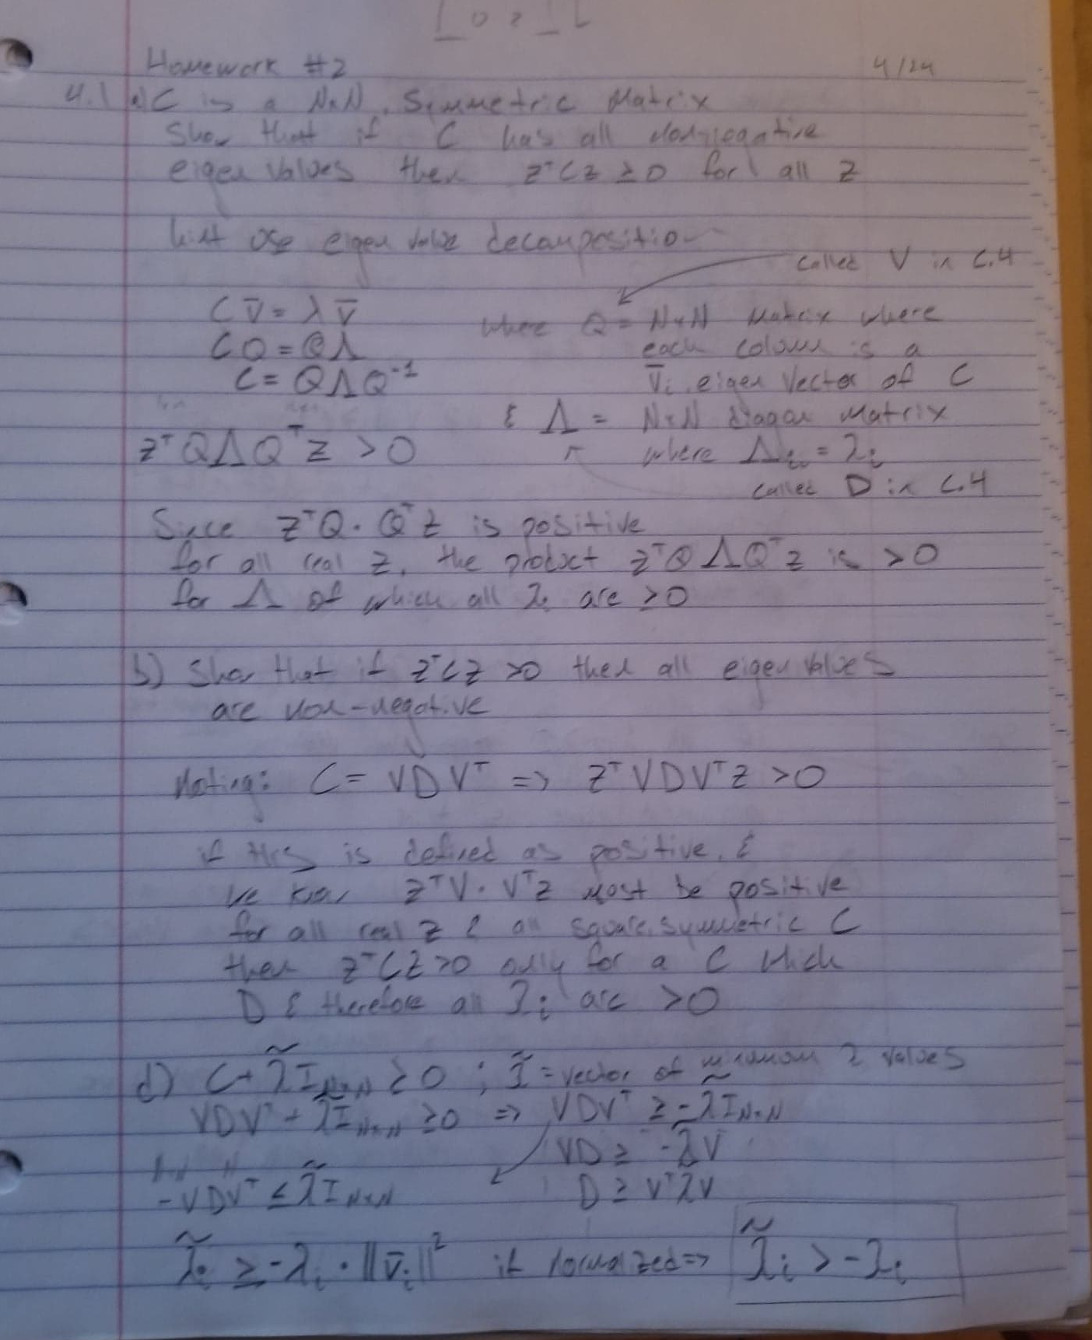 Homework #2 4/24
4.1 a) C is a N×N, Symmetric Matrix
Show that if C has all Nonnegative
eigen values then zᵀCz ≥ 0 for all z
hint use eigen value decomposition
called V in C.4
C v̄ = λ v̄ where Q = N×N Matrix where
CQ = QΛ each column is a
C = QΛQ⁻¹ v̄ᵢ eigen vector of C
& Λ = N×N diagon Matrix
zᵀQΛQᵀz > 0 where Λᵢᵢ = λᵢ
called D in C.4
Since zᵀQ · Qᵀz is positive
for all real z, the product zᵀQΛQᵀz is > 0
for Λ of which all λᵢ are ≥ 0
b) Show that if zᵀCz > 0 then all eigen values
are non-negative
Noting: C = VDVᵀ => zᵀVDVᵀz > 0
if this is defined as positive, &
we know zᵀV · Vᵀz must be positive
for all real z & all square, symmetric C
then zᵀCz > 0 only for a C which
D & therefore all λᵢ are > 0
d) C + λ̃ I_N×N ≥ 0 ; λ̃ = vector of minimum λ values
VDVᵀ + λ̃ I_N×N ≥ 0 => VDVᵀ ≥ -λ̃ I_N×N
VD ≥ -λ̃V
-VDVᵀ ≤ λ̃ I_N×N D ≥ Vᵀλ̃V
λ̃ᵢ ≥ -λᵢ · ||v̄ᵢ||² if normalized => λ̃ᵢ > -λᵢ